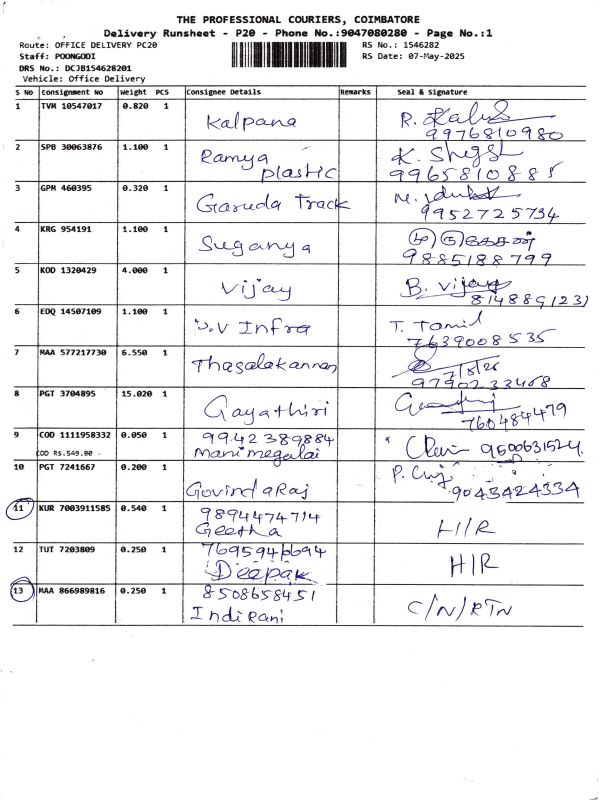 THE PROFESSIONAL COURIERS, COIMBATORE
Delivery Runsheet - P20 - Phone No.:9047080280 - Page No.:1
Route: OFFICE DELIVERY PC20
RS No.: 1546282
Staff: POONGODI
RS Date: 07-May-2025
DRS No.: DCJB154628201
Vehicle: Office Delivery
S No Consignment No Weight PCS Consignee Details Remarks Seal & Signature
1 TVM 10547017 0.820 1 Kalpana R.
9976810980
2 SPB 30063876 1.100 1 Ramya K.
plastic 9965810885
3 GPM 460395 0.320 1 Garuda Track M.
9952725734
4 KRG 954191 1.100 1 Suganya
9885188799
5 KOD 1320429 4.000 1 Vijay B. Vijay
6 EDQ 14507109 1.100 1 V Infra T. Tamil
7639008535
7 MAA 577217730 6.550 1 Thasalakannan
9790233468
8 PGT 3704895 15.020 1 Gayathiri
760484479
9 COD 1111958332 0.050 1 9942389884
COD Rs.549.00 Manimegalai
10 PGT 7241667 0.200 1 GovindaRaj P.
9043424334
11 KUR 7003911585 0.540 1 9894474714
Geetha H/R
12 TUT 7203809 0.250 1
Deepak H/R
13 MAA 866989816 0.250 1 8508658451
IndiRani C/N/RTN